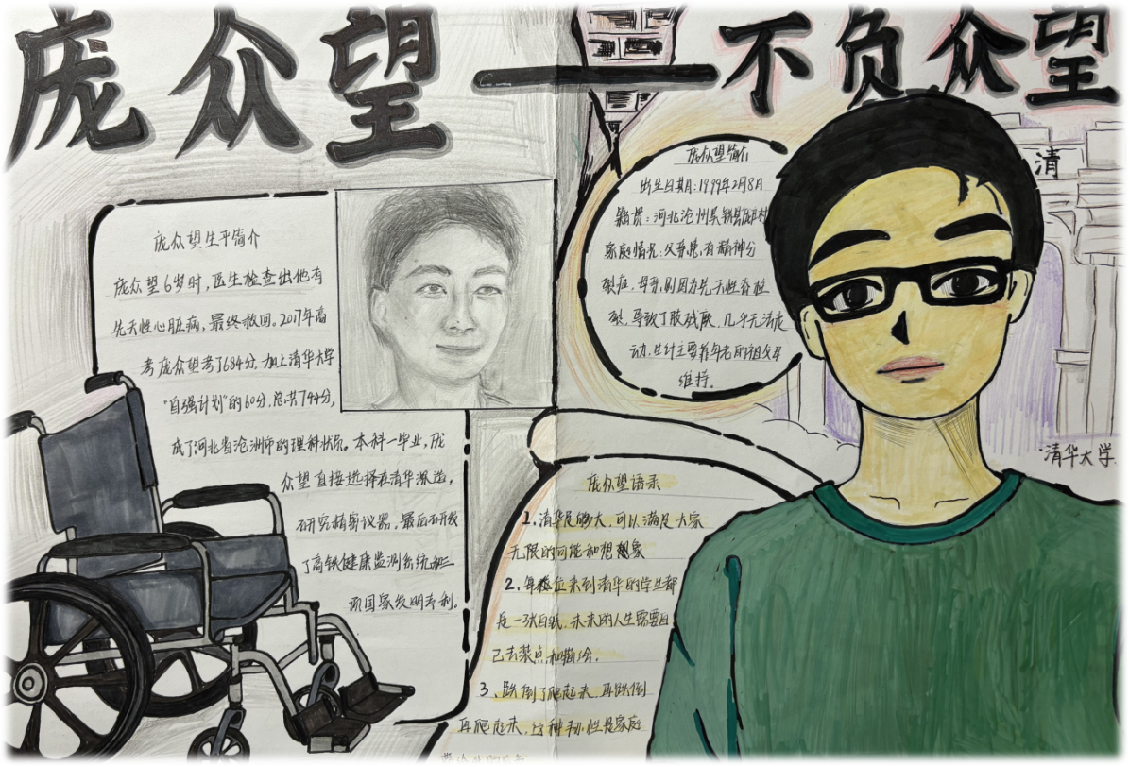 庞众望——不负众望
庞众望生平简介
庞众望6岁时，医生检查出他有
先天性心脏病，最终救回。2017年高
考庞众望考了684分，加上清华大学
"自强计划"的60分，总共744分，
成了河北省沧洲师的理科状元。本科一毕业，庞
众望直接选择在清华深造，
研究精密仪器，最后研发
了高铁健康监测系统
项国家发明专利。
庞众望简介
出生日期：1999年2月8日
籍贯：河北沧州吴桥县
家庭情况：父亲患有精神分
裂症，母亲则因为先天性脊柱
裂，导致下肢残疾，几乎无法走
动，生计主要靠年迈的祖父母
维持。
清
清华大学
庞众望语录
1、清华足够大，可以满足大家
无限的可能和想象
2、每位来到清华的学生都
是一张白纸，未来的人生需要自
己去装点和描绘。
3、跌倒了爬起来，再跌倒
再爬起来，这种韧性是家庭